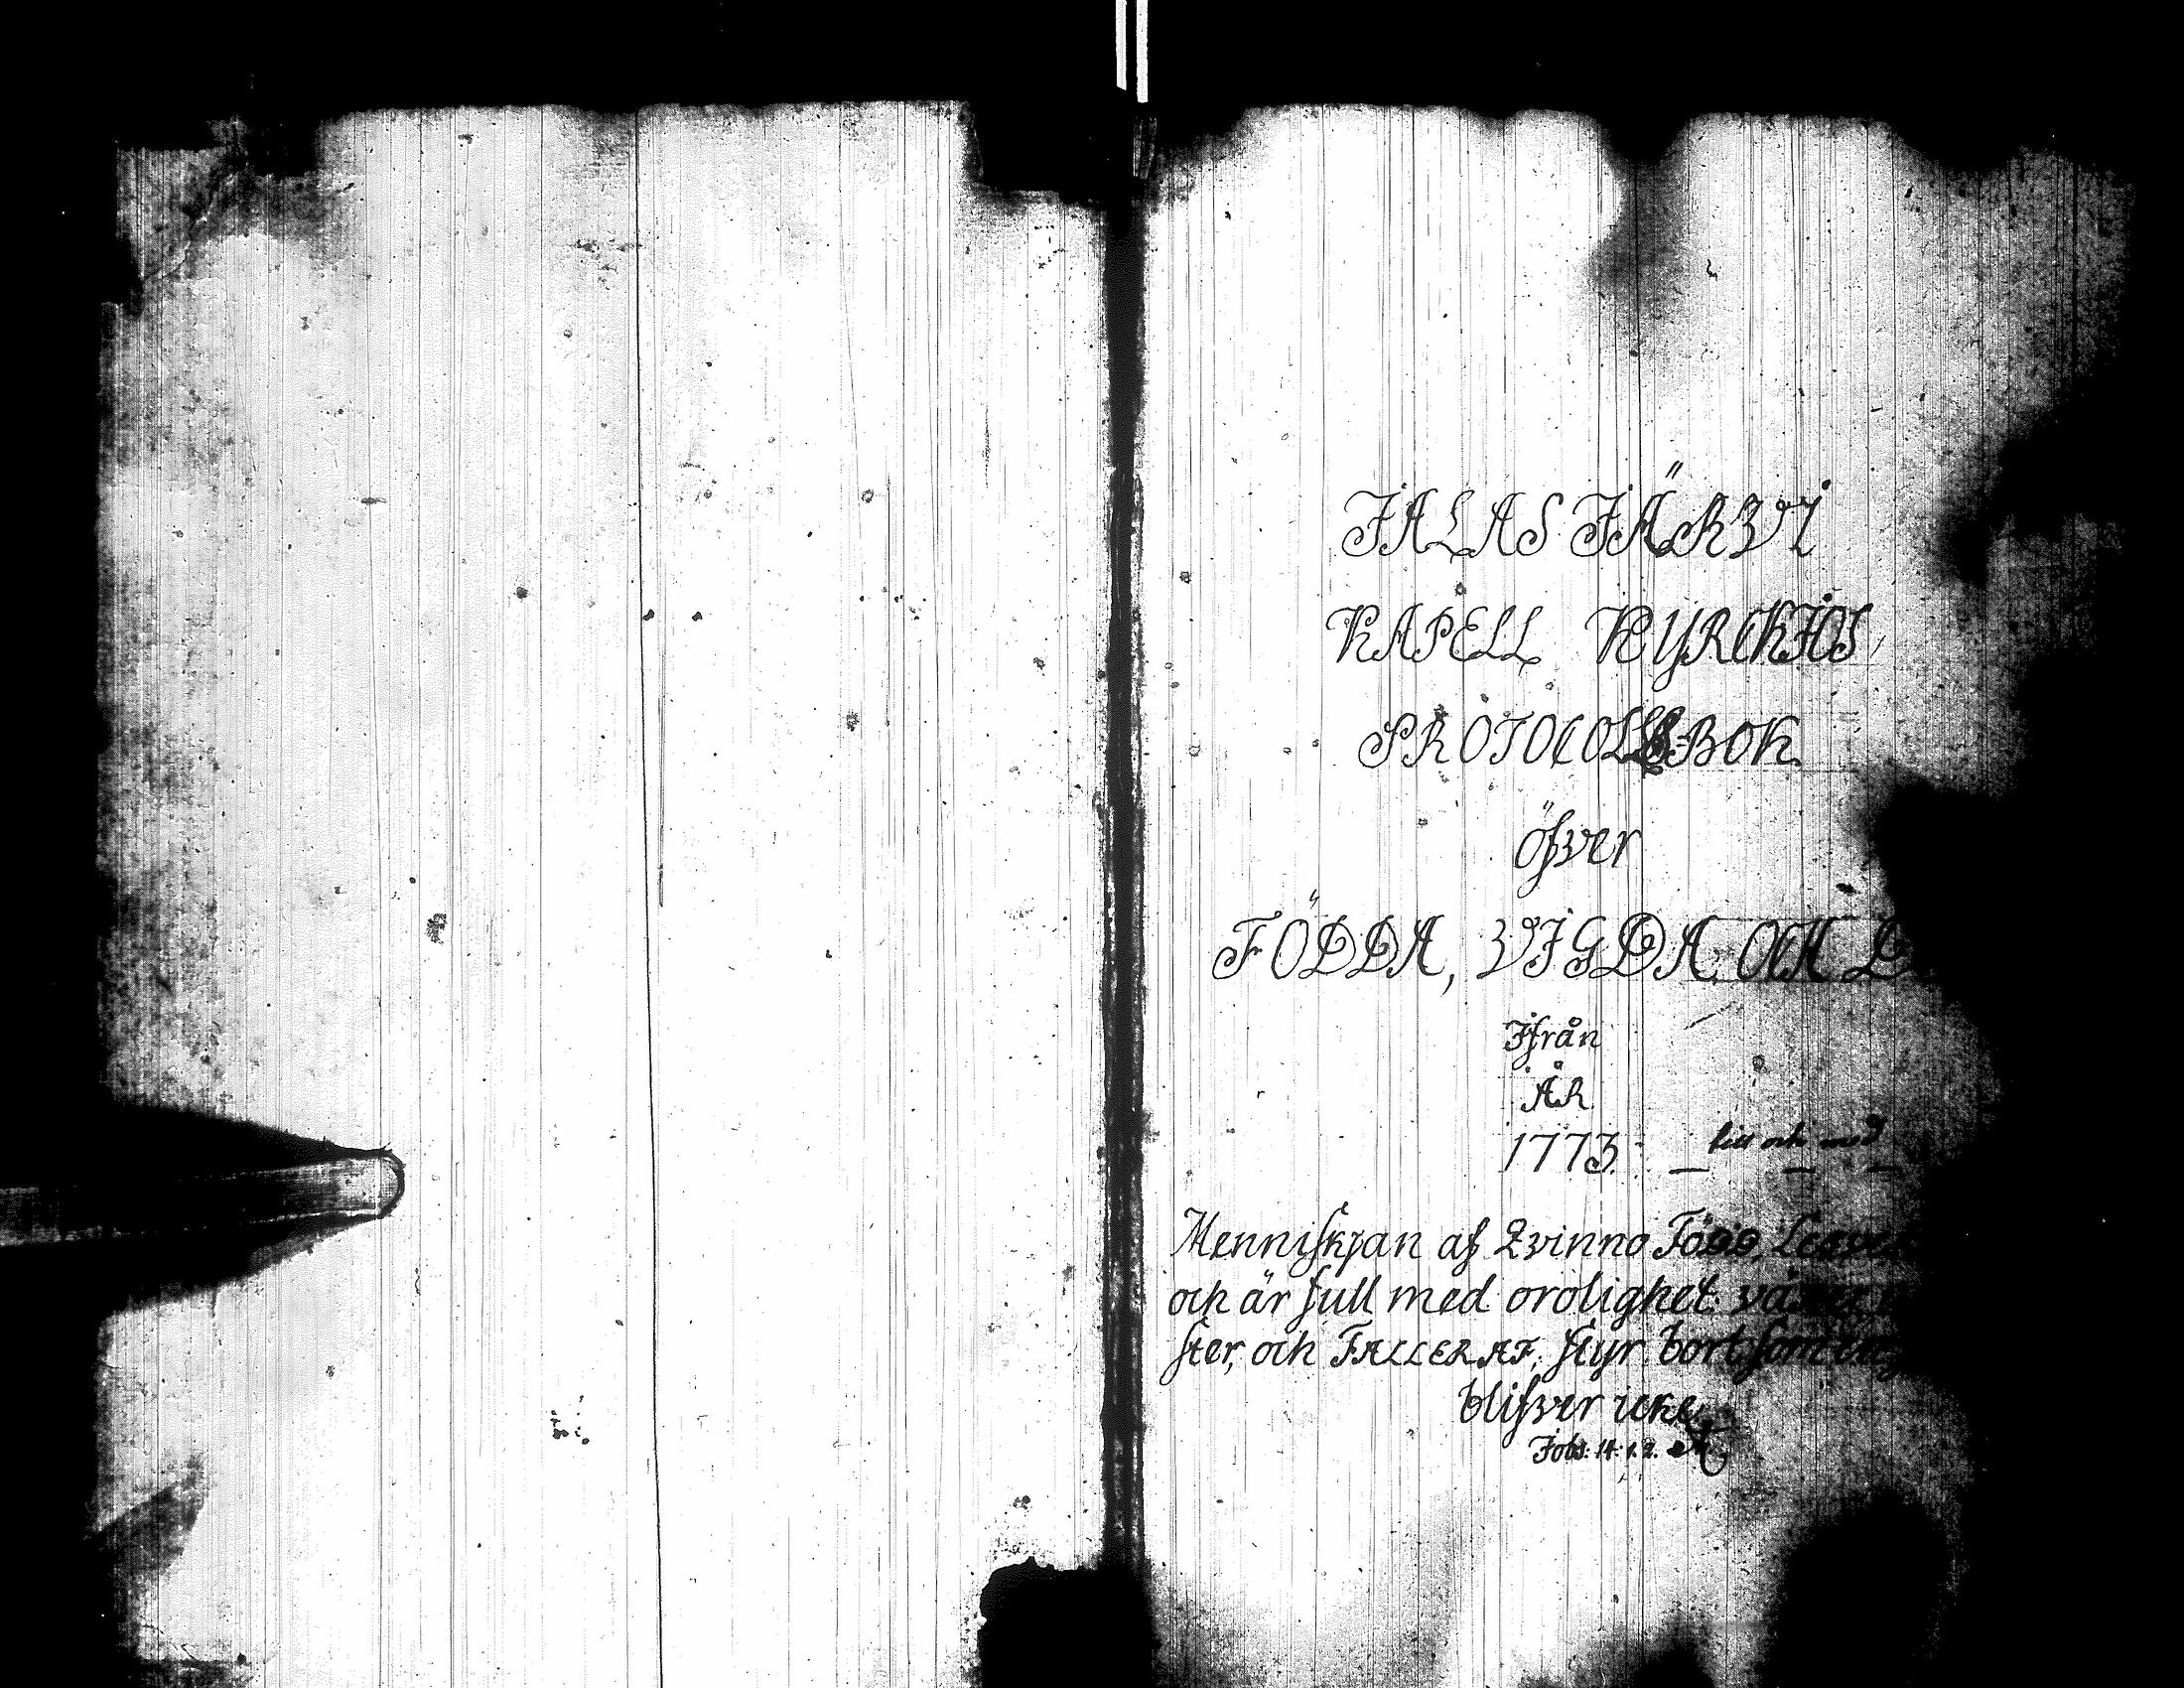 JALASJÄRVI
KAPELL KYRCKJOS
PROTOCOLLS BOK
öfver
FÖDDA, VIGDA OCH D
Ifrån
ÅR
1773. till och med
Menniskjan af Qvinno Född, Lefver
och är full med orolighet: växer
ster, och FALLER AF; flyr bort som en
blifver icke
Jobs: 14: 1. 2.